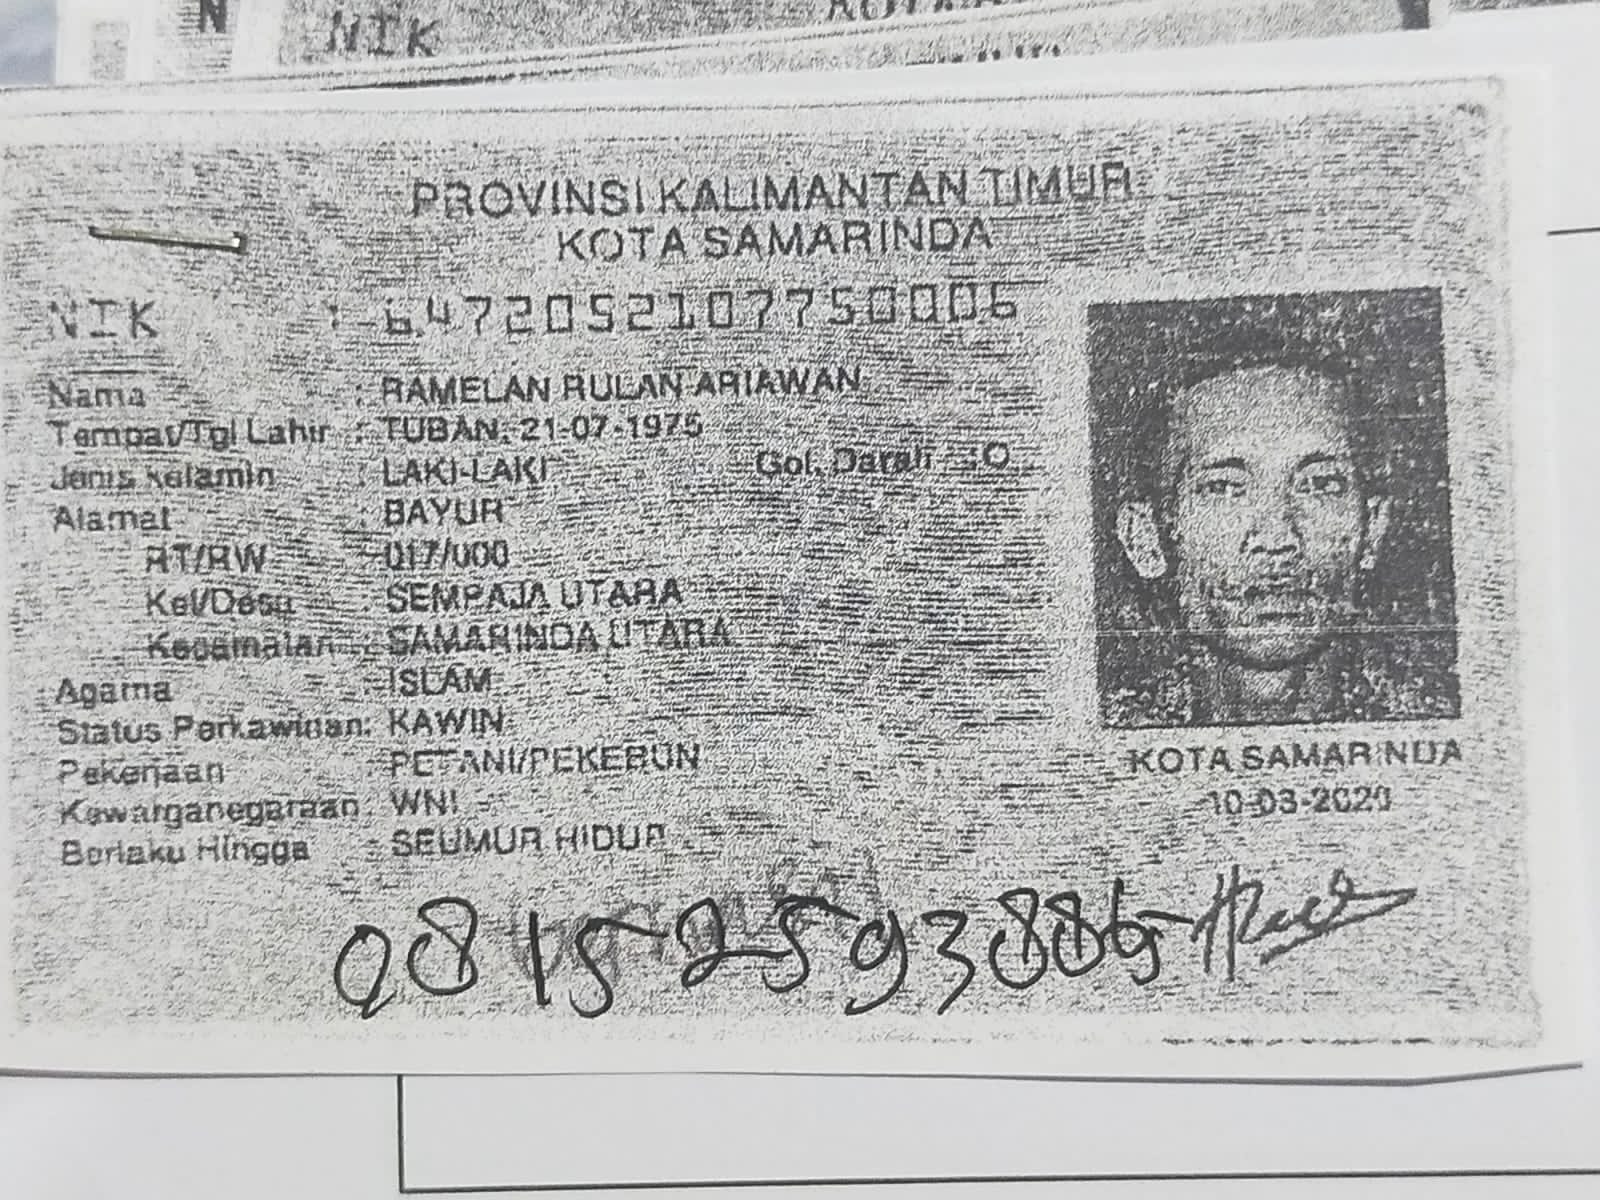 NIK
PROVINSI KALIMANTAN TIMUR
KOTA SAMARINDA
NIK : 6472052107750006
Nama : RAMELAN RULAN ARIAWAN
Tempat/Tgl Lahir : TUBAN, 21-07-1975
Jenis Kelamin : LAKI-LAKI Gol. Darah : O
Alamat : BAYUR
RT/RW : 017/000
Kel/Desa : SEMPAJA UTARA
Kecamatan : SAMARINDA UTARA
Agama : ISLAM
Status Perkawinan: KAWIN
Pekerjaan : PETANI/PEKEBUN
Kewarganegaraan: WNI
Berlaku Hingga : SEUMUR HIDUP
KOTA SAMARINDA
10-03-2020